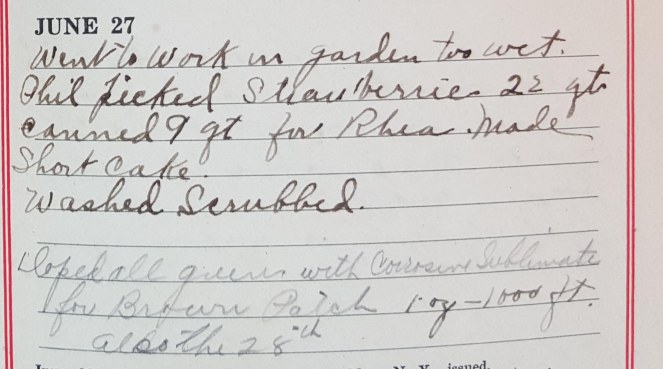 JUNE 27
Went to work in garden too wet.
Phil picked Strawberries 22 qts
canned 9 qt for Rhea. Made
Short Cake.
Washed Scrubbed.
Doped all greens with Corrosive Sublimate
for Brown Patch 1 oz – 1000 ft.
also the 28th
N. Y. issued.